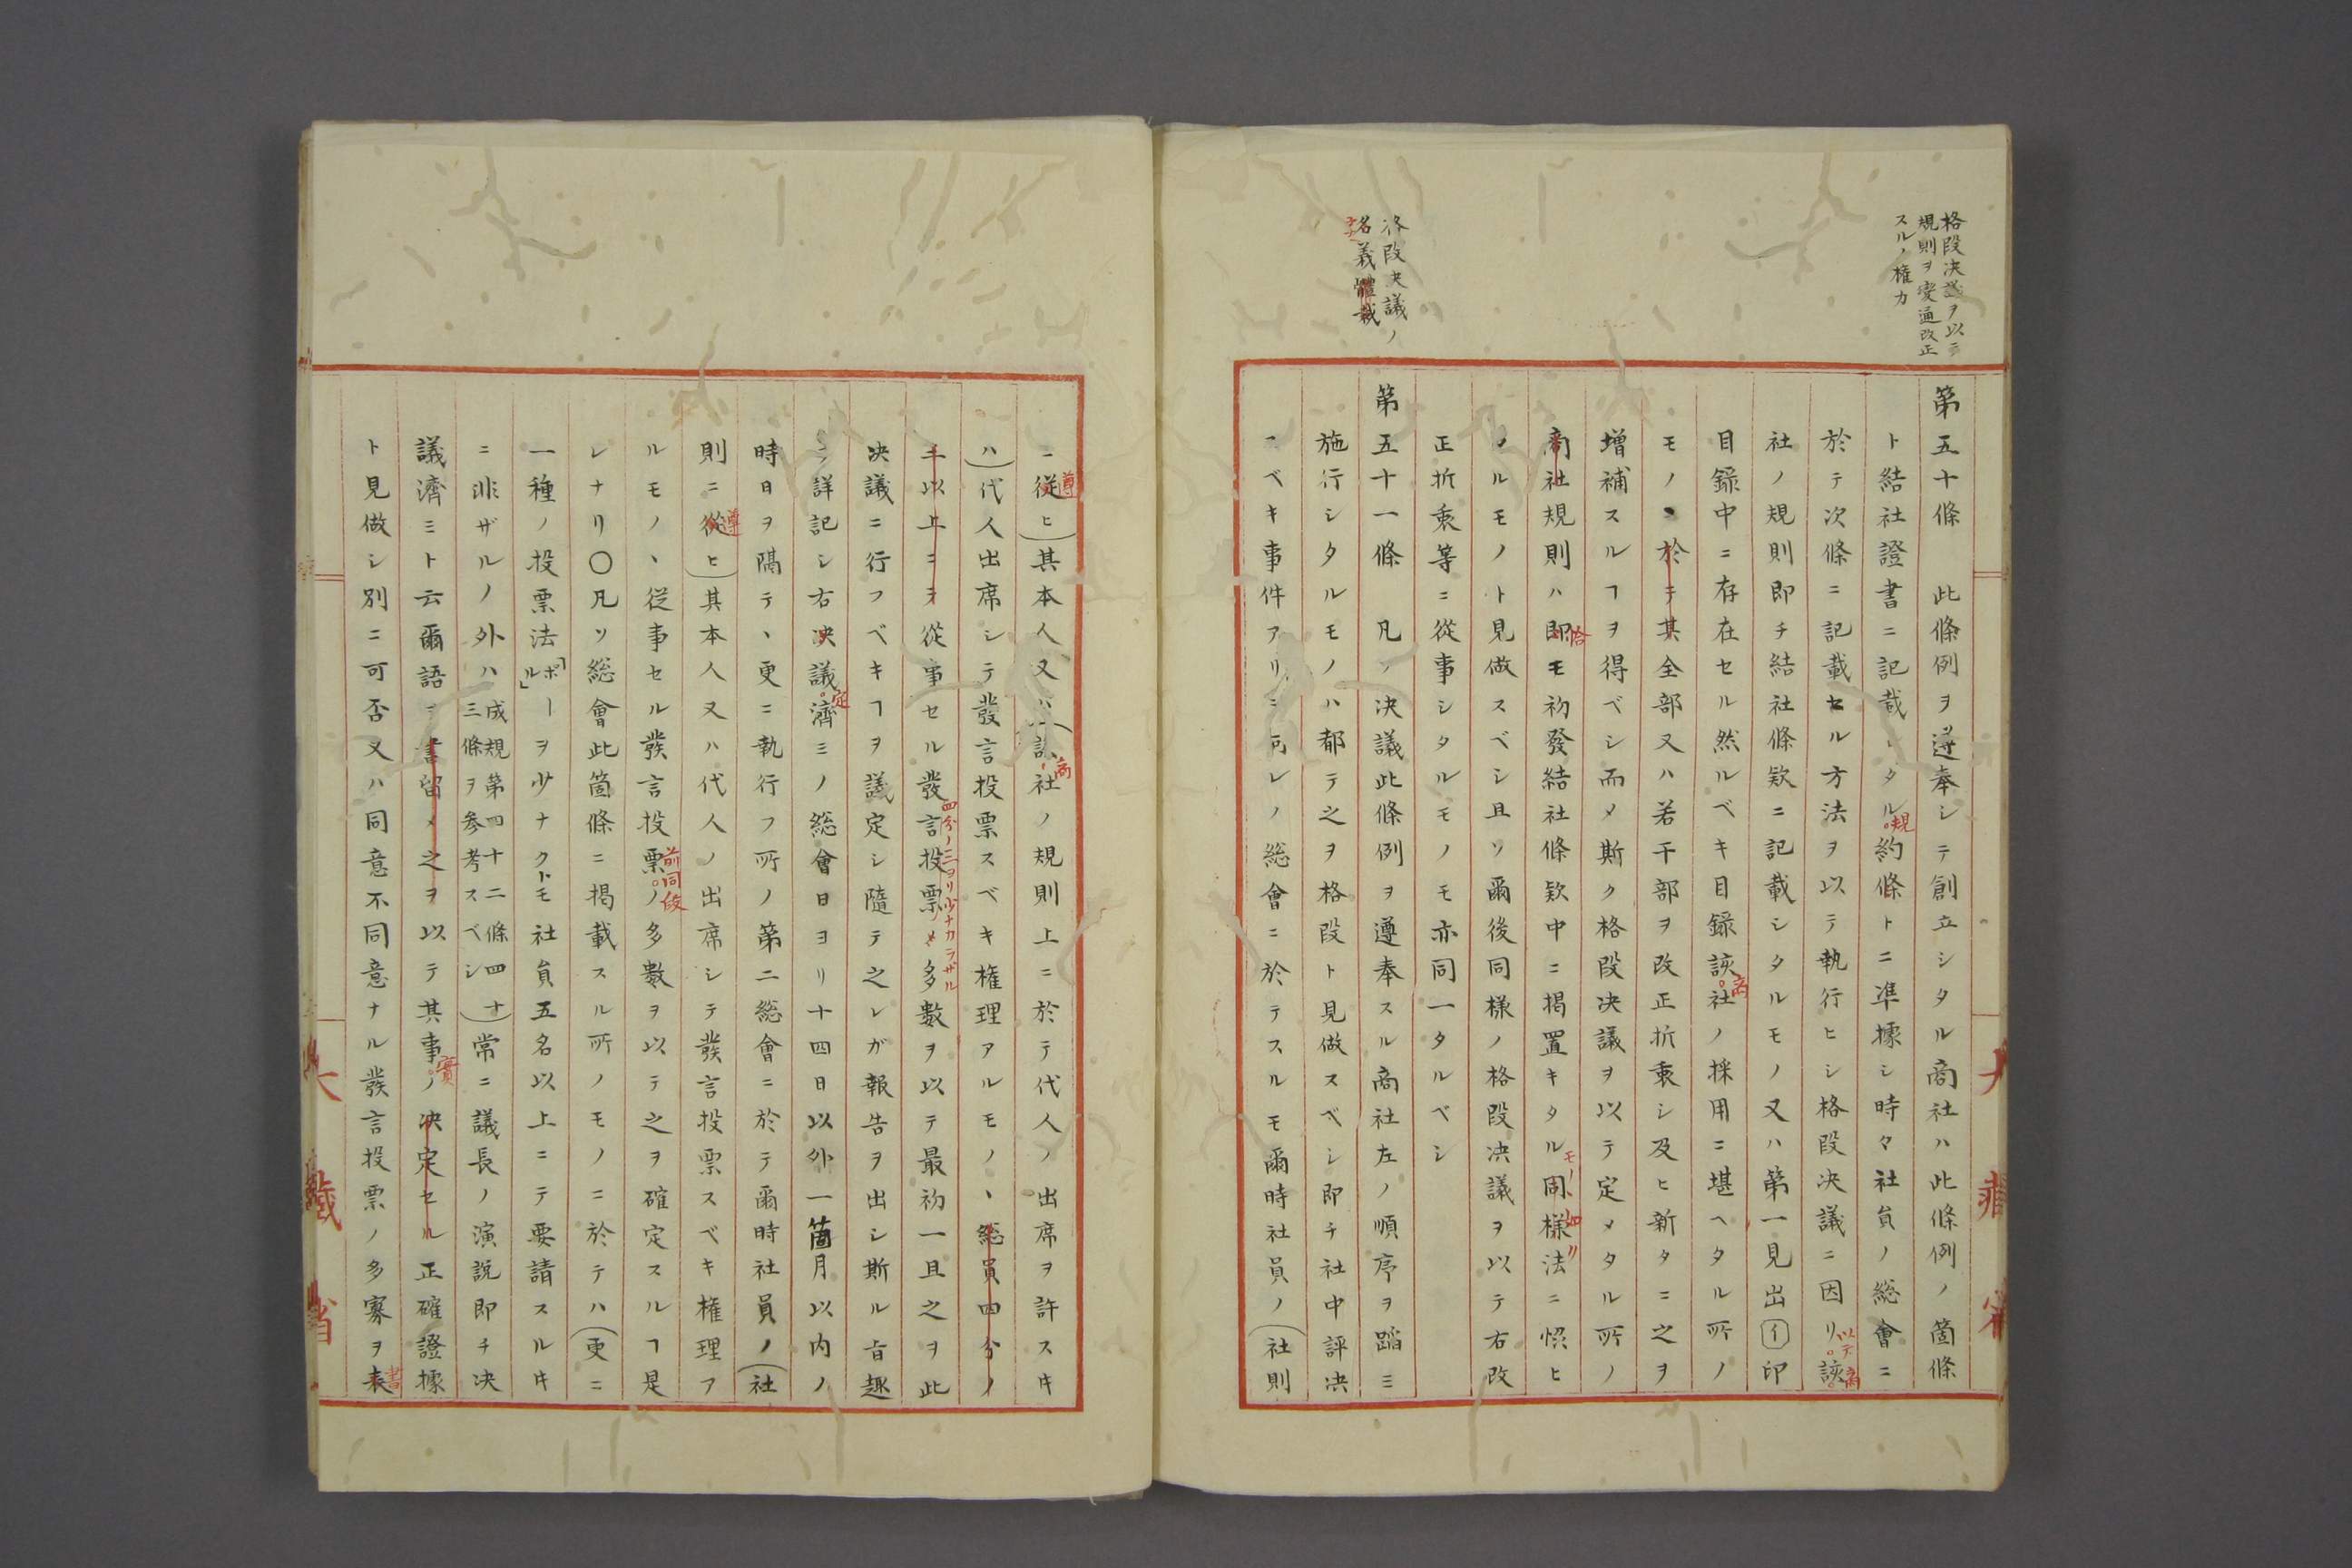 格段决議ヲ以テ
規則ヲ変通改正
スルノ権力
第五十條　此條例ヲ遵奉シテ創立シタル商社ハ此條例ノ箇條
ト結社證書ニ記哉シタル規約條トニ準據シ時々社員ノ総會ニ
於テ次條ニ記載セル方法ヲ以テ執行ヒシ格段决議ニ因リ以テ該商
社ノ規則即チ結社條欵ニ記載シタルモノ又ハ第一見出イ印
目錄中ニ存在セル然ルベキ目錄該商社ノ採用ニ堪ヘタル所ノ
モノヽ於テ其全部又ハ若干部ヲ改正折衷シ及ヒ新タニ之ヲ
増補スルヿヲ得ベシ而メ斯ク格段决議ヲ以テ定メタル所ノ
商社規則ハ即恰モ初發結社條欵中ニ掲置キタルモノヽ如ク同樣法ニ照ヒ
ノルモノト見做スベシ且ツ爾後同樣ノ格段决議ヲ以テ右改
正折衷等ニ從事シタルモノモ亦同一タルベシ
格段决議ノ
名義體裁
第五十一條　凡ソ决議此條例ヲ遵奉スル商社左ノ順序ヲ蹈ミ
施行シタルモノハ都テ之ヲ格段ト見做スベシ即チ社中評决
スベキ事件アリテ何レノ総會ニ於テスルモ爾時社員ノ（社則
ニ從遵ヒ）其本人又ハ（該商社ノ規則上ニ於テ代人ノ出席ヲ許スキ
ハ）代人出席シテ發言投票スベキ権理アルモノヽ総員四分ノ
三以上ニヲ從事セル發言投票四分ノ三ヨリ少ナカラザル多數ヲ以テ最初一旦之ヲ此
决議ニ行フベキヿヲ議定シ隨テ之レガ報告ヲ出シ斯ル旨趣
ヲ詳記シ右决議定濟ミノ総會日ヨリ十四日以外一箇月以内ノ
時日ヲ隔テヽ更ニ執行フ所ノ第二総會ニ於テ爾時社員ノ（社
則ニ從遵ヒ）其本人又ハ代人ノ出席シテ發言投票スベキ権理ア
ルモノヽ從事セル發言投票前同段ノ多數ヲ以テ之ヲ確定スルヿ是
レナリ〇凡ソ総會此箇條ニ掲載スル所ノモノニ於テハ（更ニ
一種ノ投票法「ポール」ーヲ少ナクトモ社員五名以上ニテ要請スルキ
ニ非ザルノ外ハ成規第四十二條四十三條ヲ参考スベシ）常ニ議長ノ演説即チ决
議濟ミト云爾語ヲ書留メ之ヲ以テ其事實ノ决定セル正確證據
ト見做シ別ニ可否又ハ同意不同意ナル發言投票ノ多寡ヲ表書
大藏省